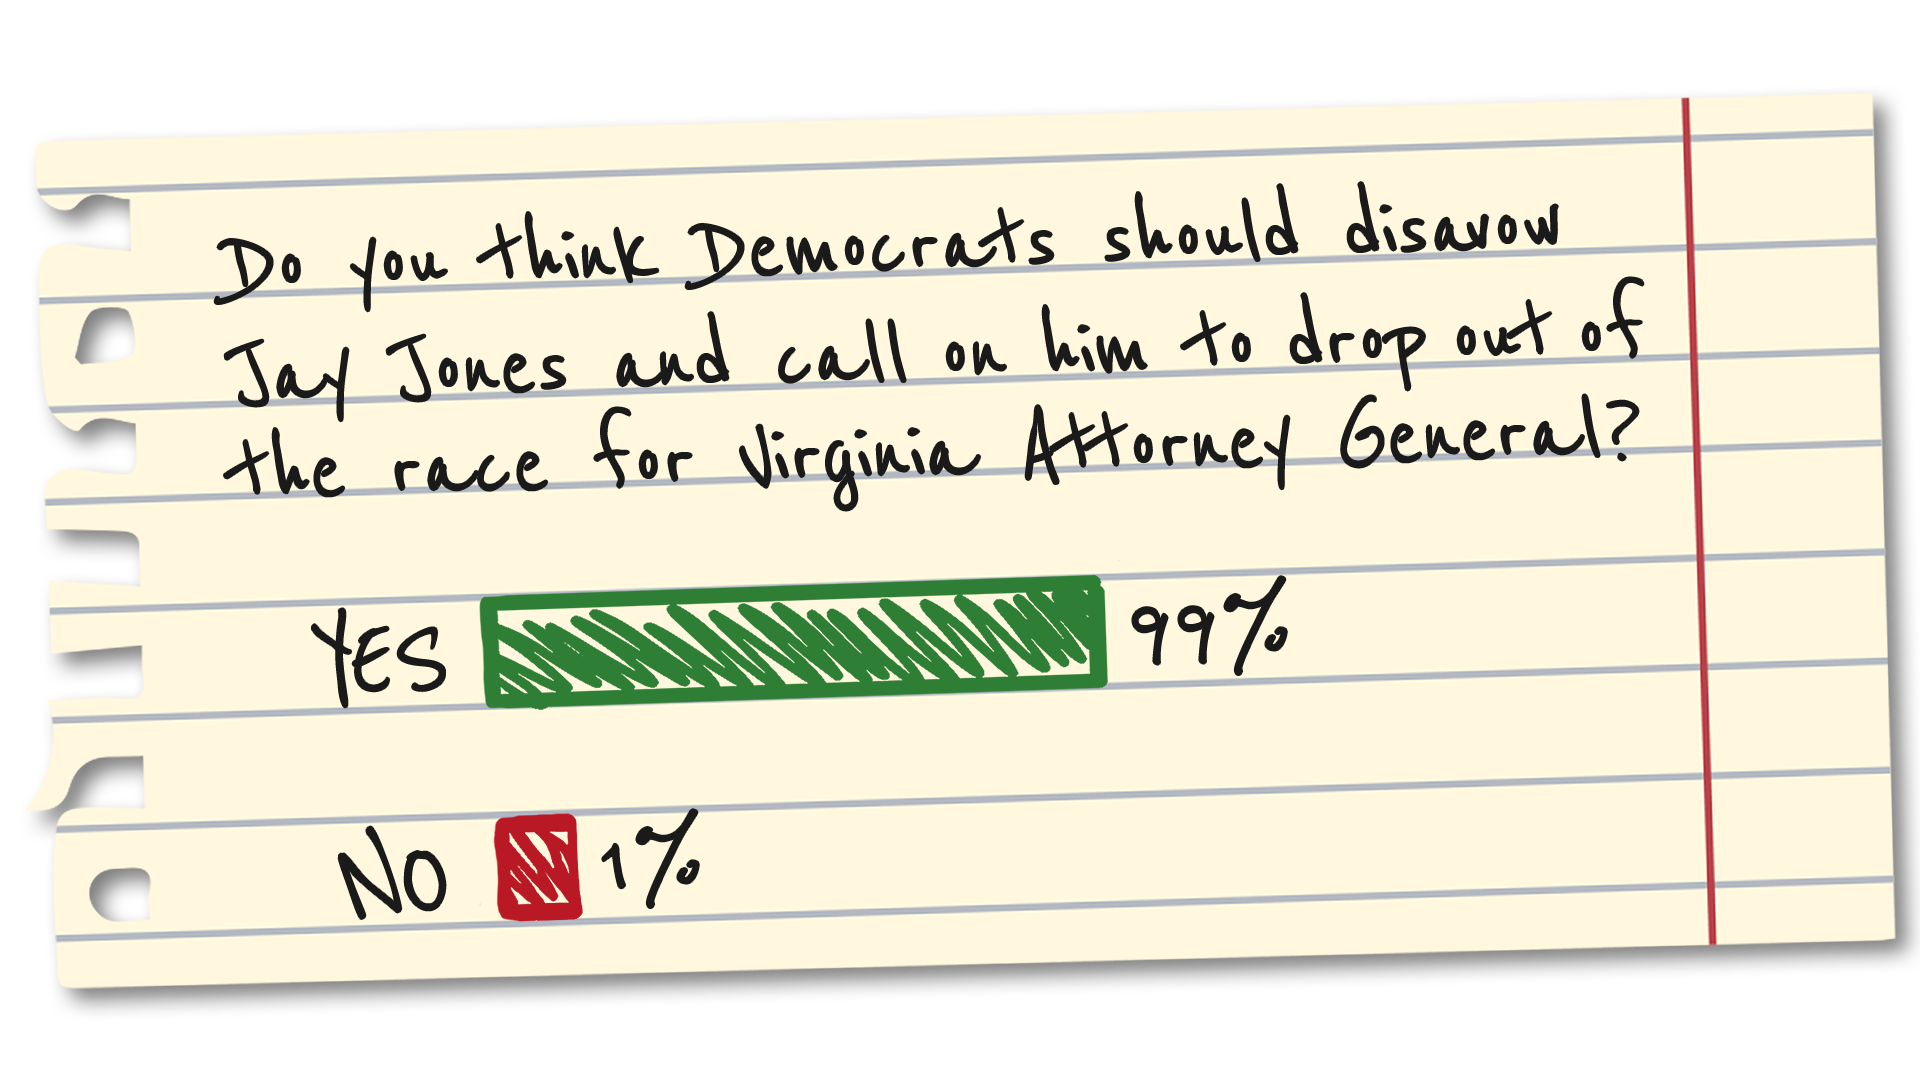 Do you think Democrats should disavow
Jay Jones and call on him to drop out of
the race for Virginia Attorney General?
YES 99%
NO 1%